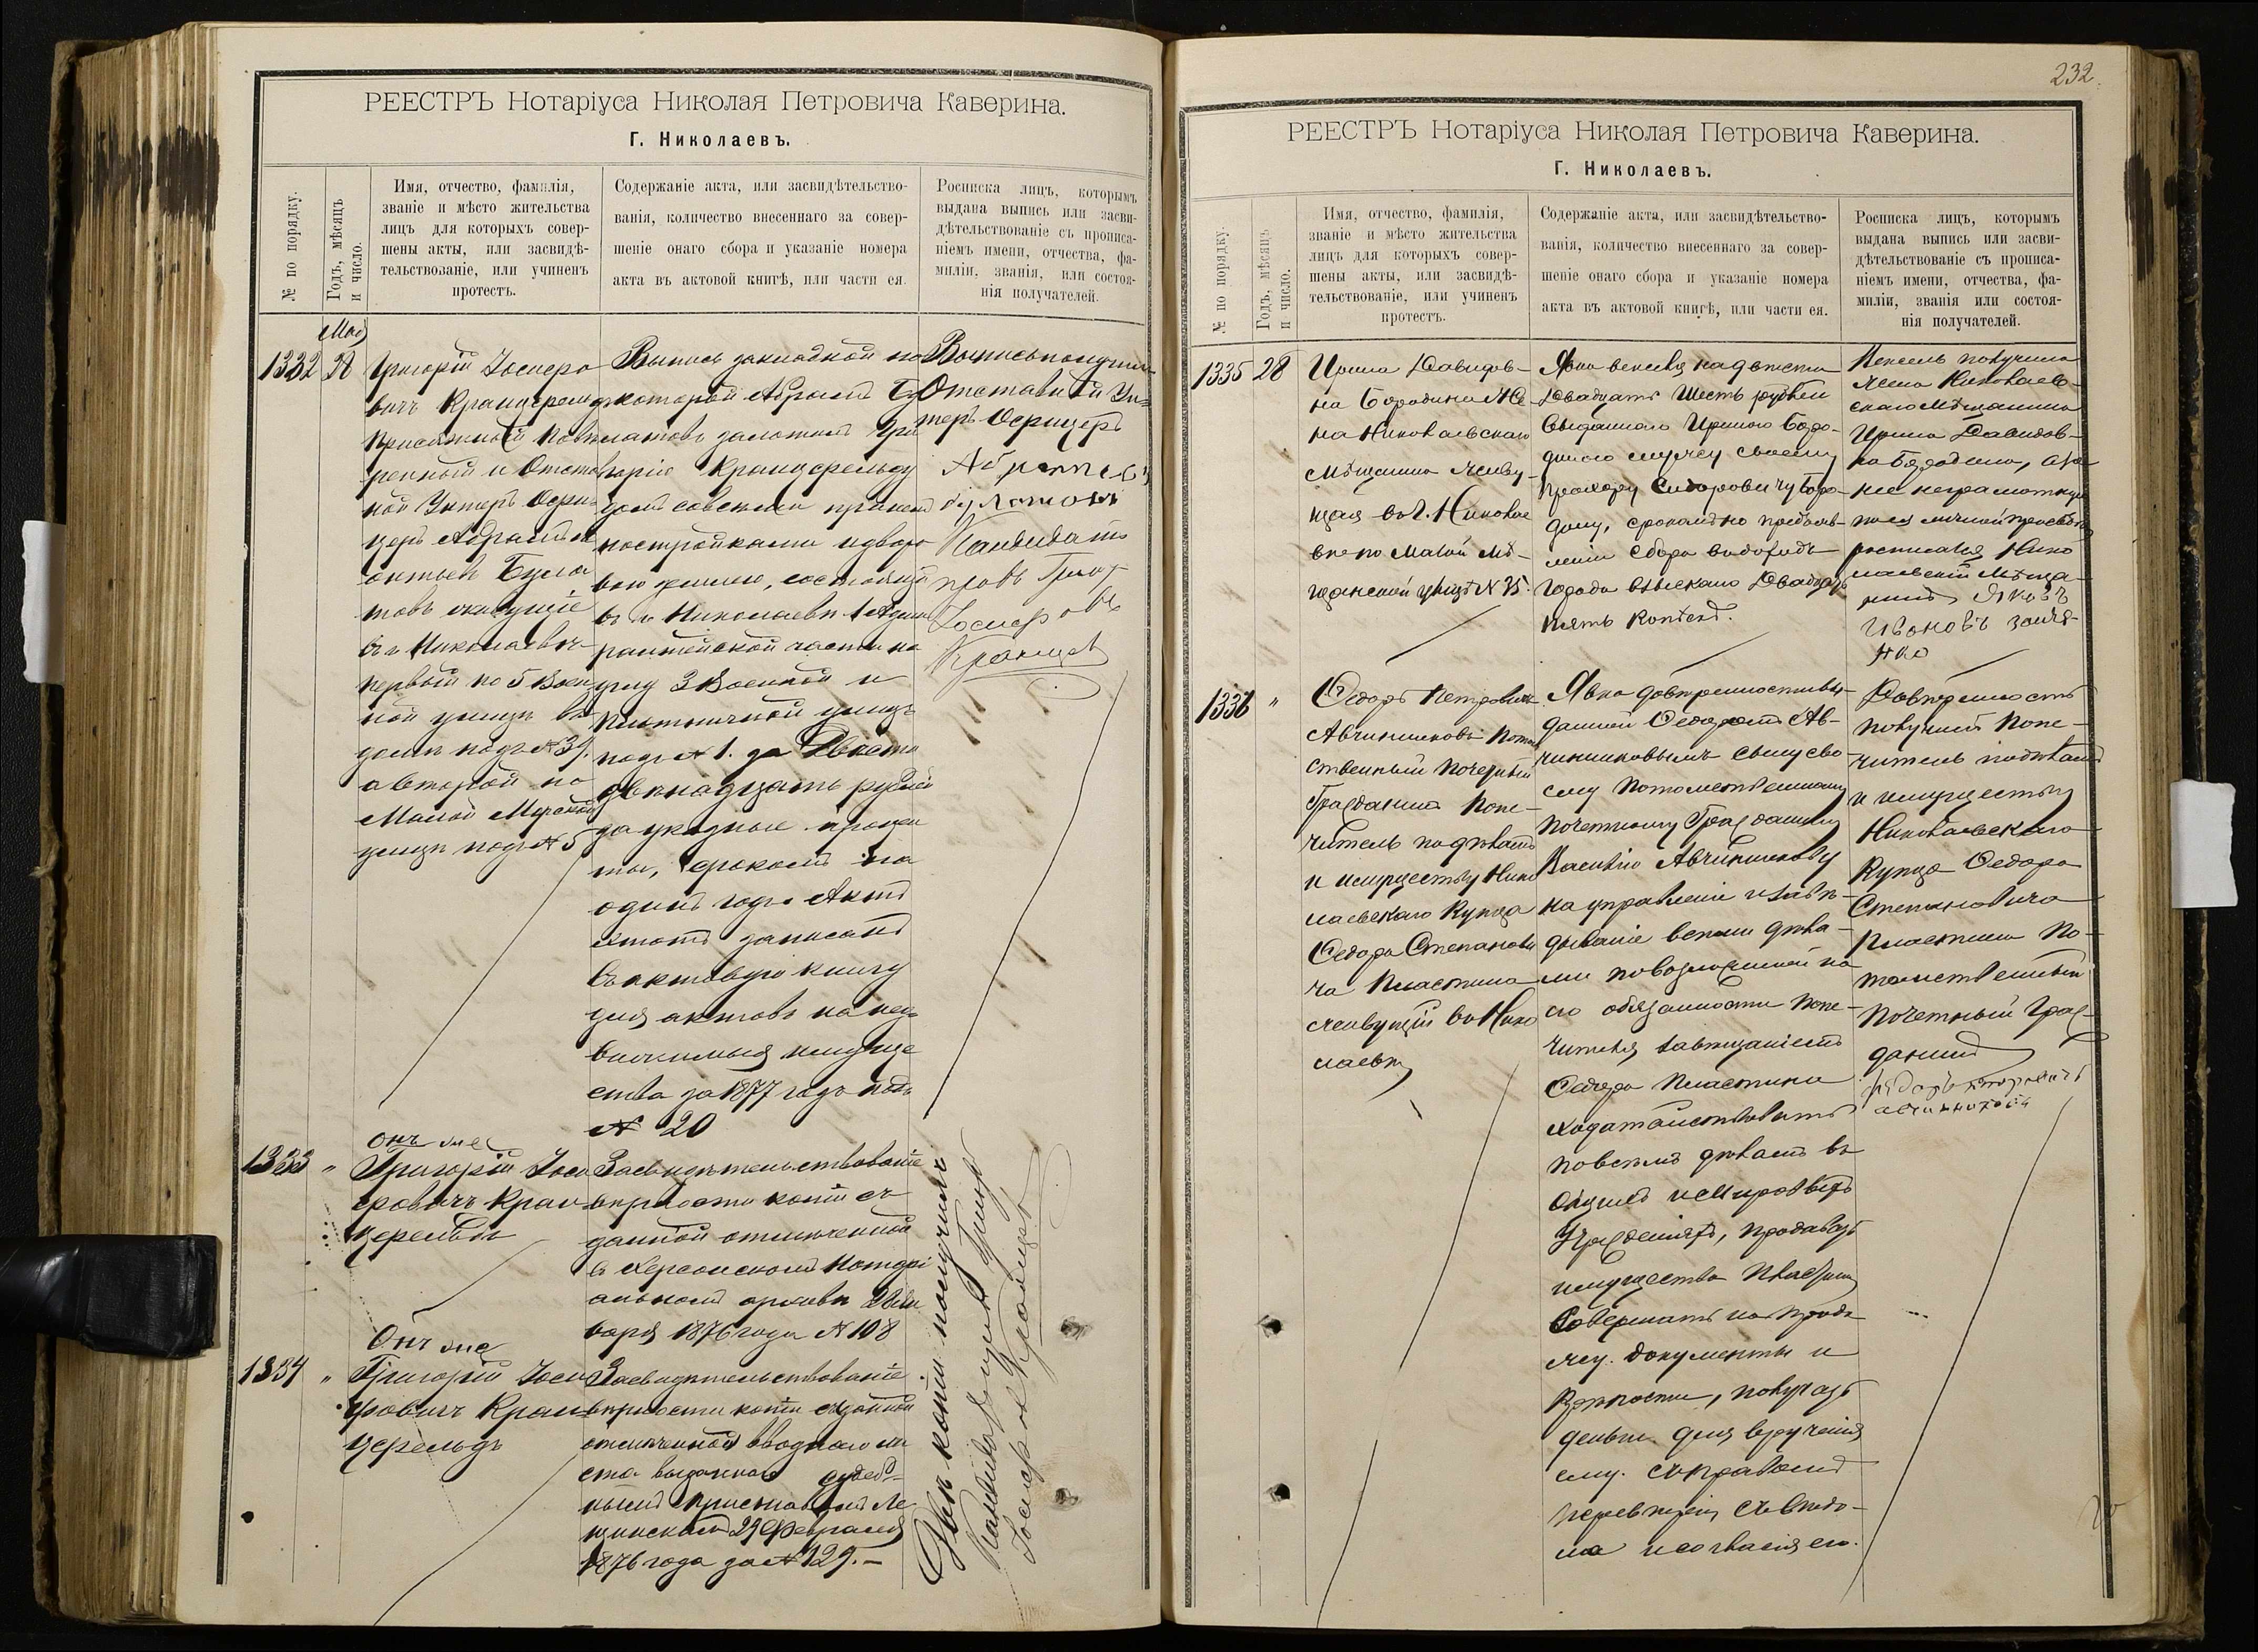 РЕЕСТРЪ Нотаріуса Николая Петровича Каверина.
Г. Николаевъ.
№ по порядку.
Годъ, мѣсяцъ
и число.
Имя, отчество, фамилія,
званіе и мѣсто жительства
лицъ для которыхъ совер-
шены акты, или засвидѣ-
тельствованіе, или учиненъ
протестъ.
Содержаніе акта, или засвидѣтельство-
ванія, количество внесеннаго за совер-
шеніе онаго сбора и указаніе номера
акта въ актовой книгѣ, или части ея.
Росписка лицъ, которымъ
выдана выпись или засви-
дѣтельствованіе съ прописа-
ніемъ имени, отчества, фа-
миліи, званія, или состоя-
нія получателей.
1332
Григорій Іосифо
вичъ Кранцфельдъ
Присяжный Повѣ
ренный и Отстав
ной Унтеръ Офи
церъ Абрамъ
Була
товъ живущіе
въ г. Николаевѣ
первый по 5 Воен
ной улицѣ въ
домѣ подъ № 39.
а второй по
Малой Морской
улицѣ подъ № 5
Выпись закладной по
которой Абрамъ Бу
латовъ заложилъ Гри
горію Кранцфельду
домъ со всѣми
постройками и дворо
вою землею, состоящій
въ г. Николаевѣ 1 Адми
ралтейской части на
углу 3 Военной и
Плотничной улицъ
подъ № 1. за Двѣсти
двѣнадцать рублей
за указные процен
ты, срокомъ на
одинъ годъ. Актъ
этотъ записанъ
въ актовую книгу
для актовъ на нед
вижимыя имуще
ства за 1877 годъ подъ
№ 20
Выпись получили
Отставной Ун=
теръ Офицеръ
Абрамъ
Булатовъ
Кандидатъ
правъ Григор
Іосифовъ
Кранцф
1333
"
Онъ же
Григорій Іоси
фовичъ Кран
цфельдъ
Засвидѣтельствованіе
вѣрности копіи съ
данной отмѣченной
въ Херсонскомъ Нотарі
альномъ архивѣ
варя 1876 года № 108
1334
"
Онъ же
Григорій Іоси
фовичъ Кран
цфельдъ
Засвидѣтельствованіе
вѣрности копіи
вводнаго ли
ста выданнаго судеб=
нымъ Приставомъ Ле
щинскимъ 29 Февраля
1876 года за № 129.–
Двѣ копіи получилъ
Кандидатъ правъ Григор
Іосифов Кранцф
232.
РЕЕСТРЪ Нотаріуса Николая Петровича Каверина.
Г. Николаевъ.
№ по порядку.
Годъ, мѣсяцъ
и число.
Имя, отчество, фамилія,
званіе и мѣсто жительства
лицъ для которыхъ совер-
шены акты, или засвидѣ-
тельствованіе, или учиненъ
протестъ.
Содержаніе акта, или засвидѣтельство-
ванія, количество внесеннаго за совер-
шеніе онаго сбора и указаніе номера
акта въ актовой книгѣ, или части ея.
Росписка лицъ, которымъ
выдана выпись или засви-
дѣтельствованіе съ прописа-
ніемъ имени, отчества, фа-
миліи, званія или состоя-
нія получателей.
1335
28
Ирина Давидов-
на Бородина Же-
на Николаевскаго
Мѣщанина живу-
щая въ г. Николае
вѣ по Малой Мѣ-
щанской улицѣ № 35.
Явка векселя на двѣсти
Двадцать Шесть рублей
выданнаго Ириною Боро-
диною мужу своему
Прохору Сидоровичу Боро-
дину, срокомъ по предъяв-
леніи сбора въ доходъ
Города взыскано Двадцать
пять копѣекъ.
Вексель получила
Жена Николаев-
скаго Мѣщанина
Ирина Давидов-
на Бородина, а за
нее неграмотную
по ея личной просьбѣ
росписался Нико
лаевскій Мѣща-
нинъ Яковъ
Ивановъ
1336
"
Ѳедоръ Петровичъ
Авчинниковъ Потом
ственный Почетный
Гражданинъ Попе-
читель по дѣламъ
и имуществу Нико
лаевскаго Купца
Ѳедора Степанови
ча Пластина
живущій въ Нико
лаевѣ
Явка довѣренности вы-
данной Ѳедоромъ Ав-
чинниковымъ сыну сво-
ему Потомственному
почетному Гражданину
Василію Авчинникову
на управленіе и завѣ-
дываніе всѣми дѣла-
ми по возложенной на
его обязанности Попе-
чителя завѣщаніемъ
Ѳедора Пластина
ходатайствовать
по всѣмъ дѣламъ въ
общихъ и Мировыхъ
Учрежденіяхъ, продавать
имущества Пластина
Совершать на прода-
жу документы и
Крѣпости, получать
деньги для врученія
ему. съ правомъ
передовѣрія съ вѣдо-
ма и согласія его.
Довѣренность
получилъ Попе-
читель по дѣламъ
и имуществу
Николаевскаго
Купца Ѳедора
Степановича
Пластина По-
томственный
Почетный Граж-
данинъ